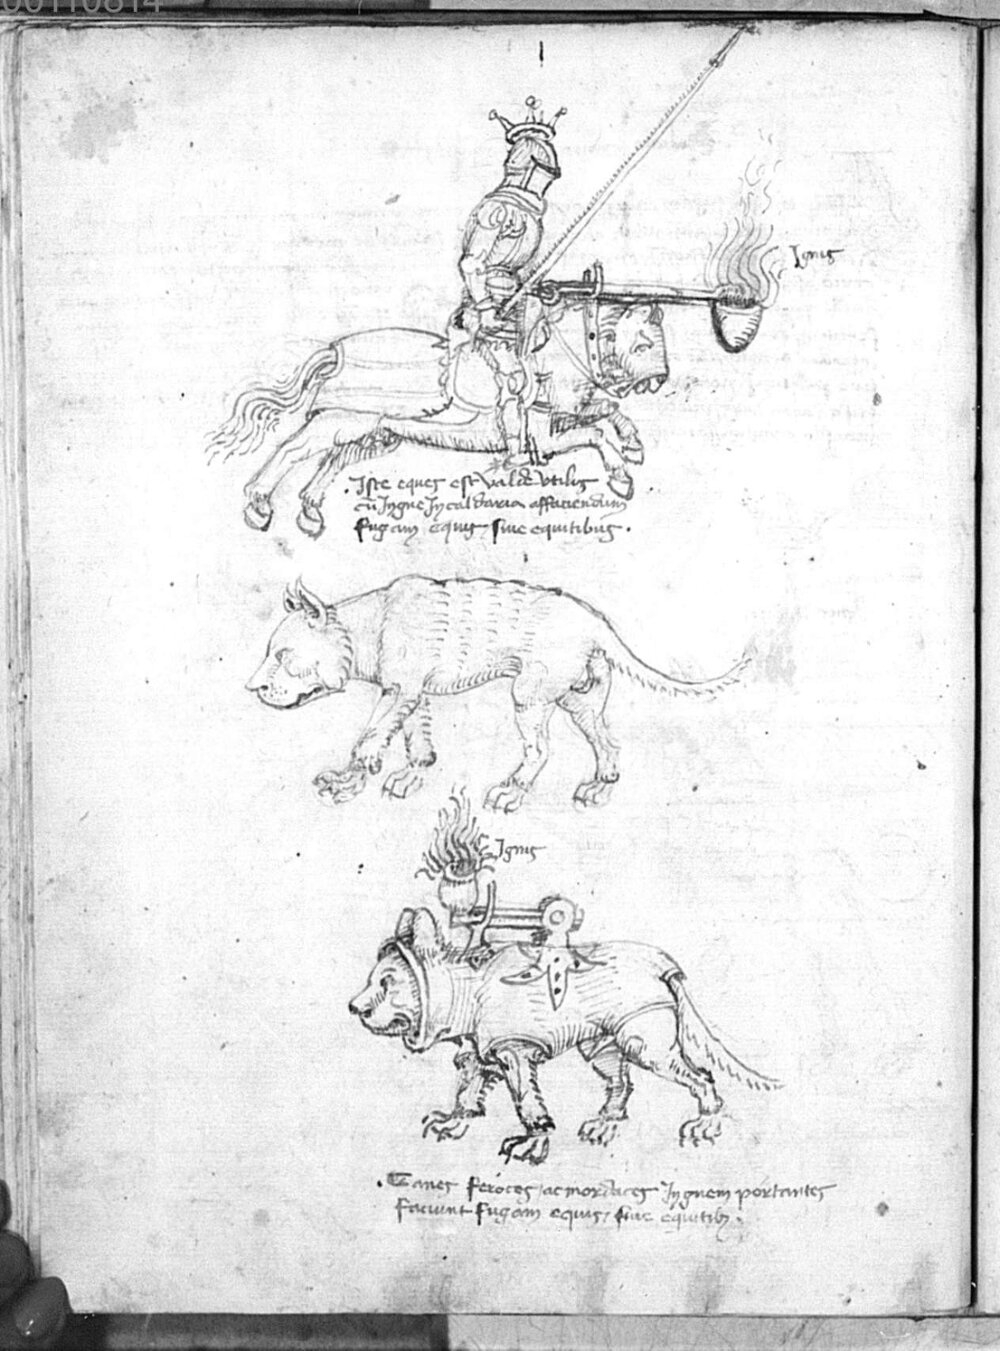 00110814
Ignis
.Iste eques est valde utilis
cũ Ingne In caldaria affaciendum
fugam equis / sive equitibus .
Ignis
. Canes feroces / ac mordaces Ingnem portantes
faciunt fugam equis / sive equitib3 .